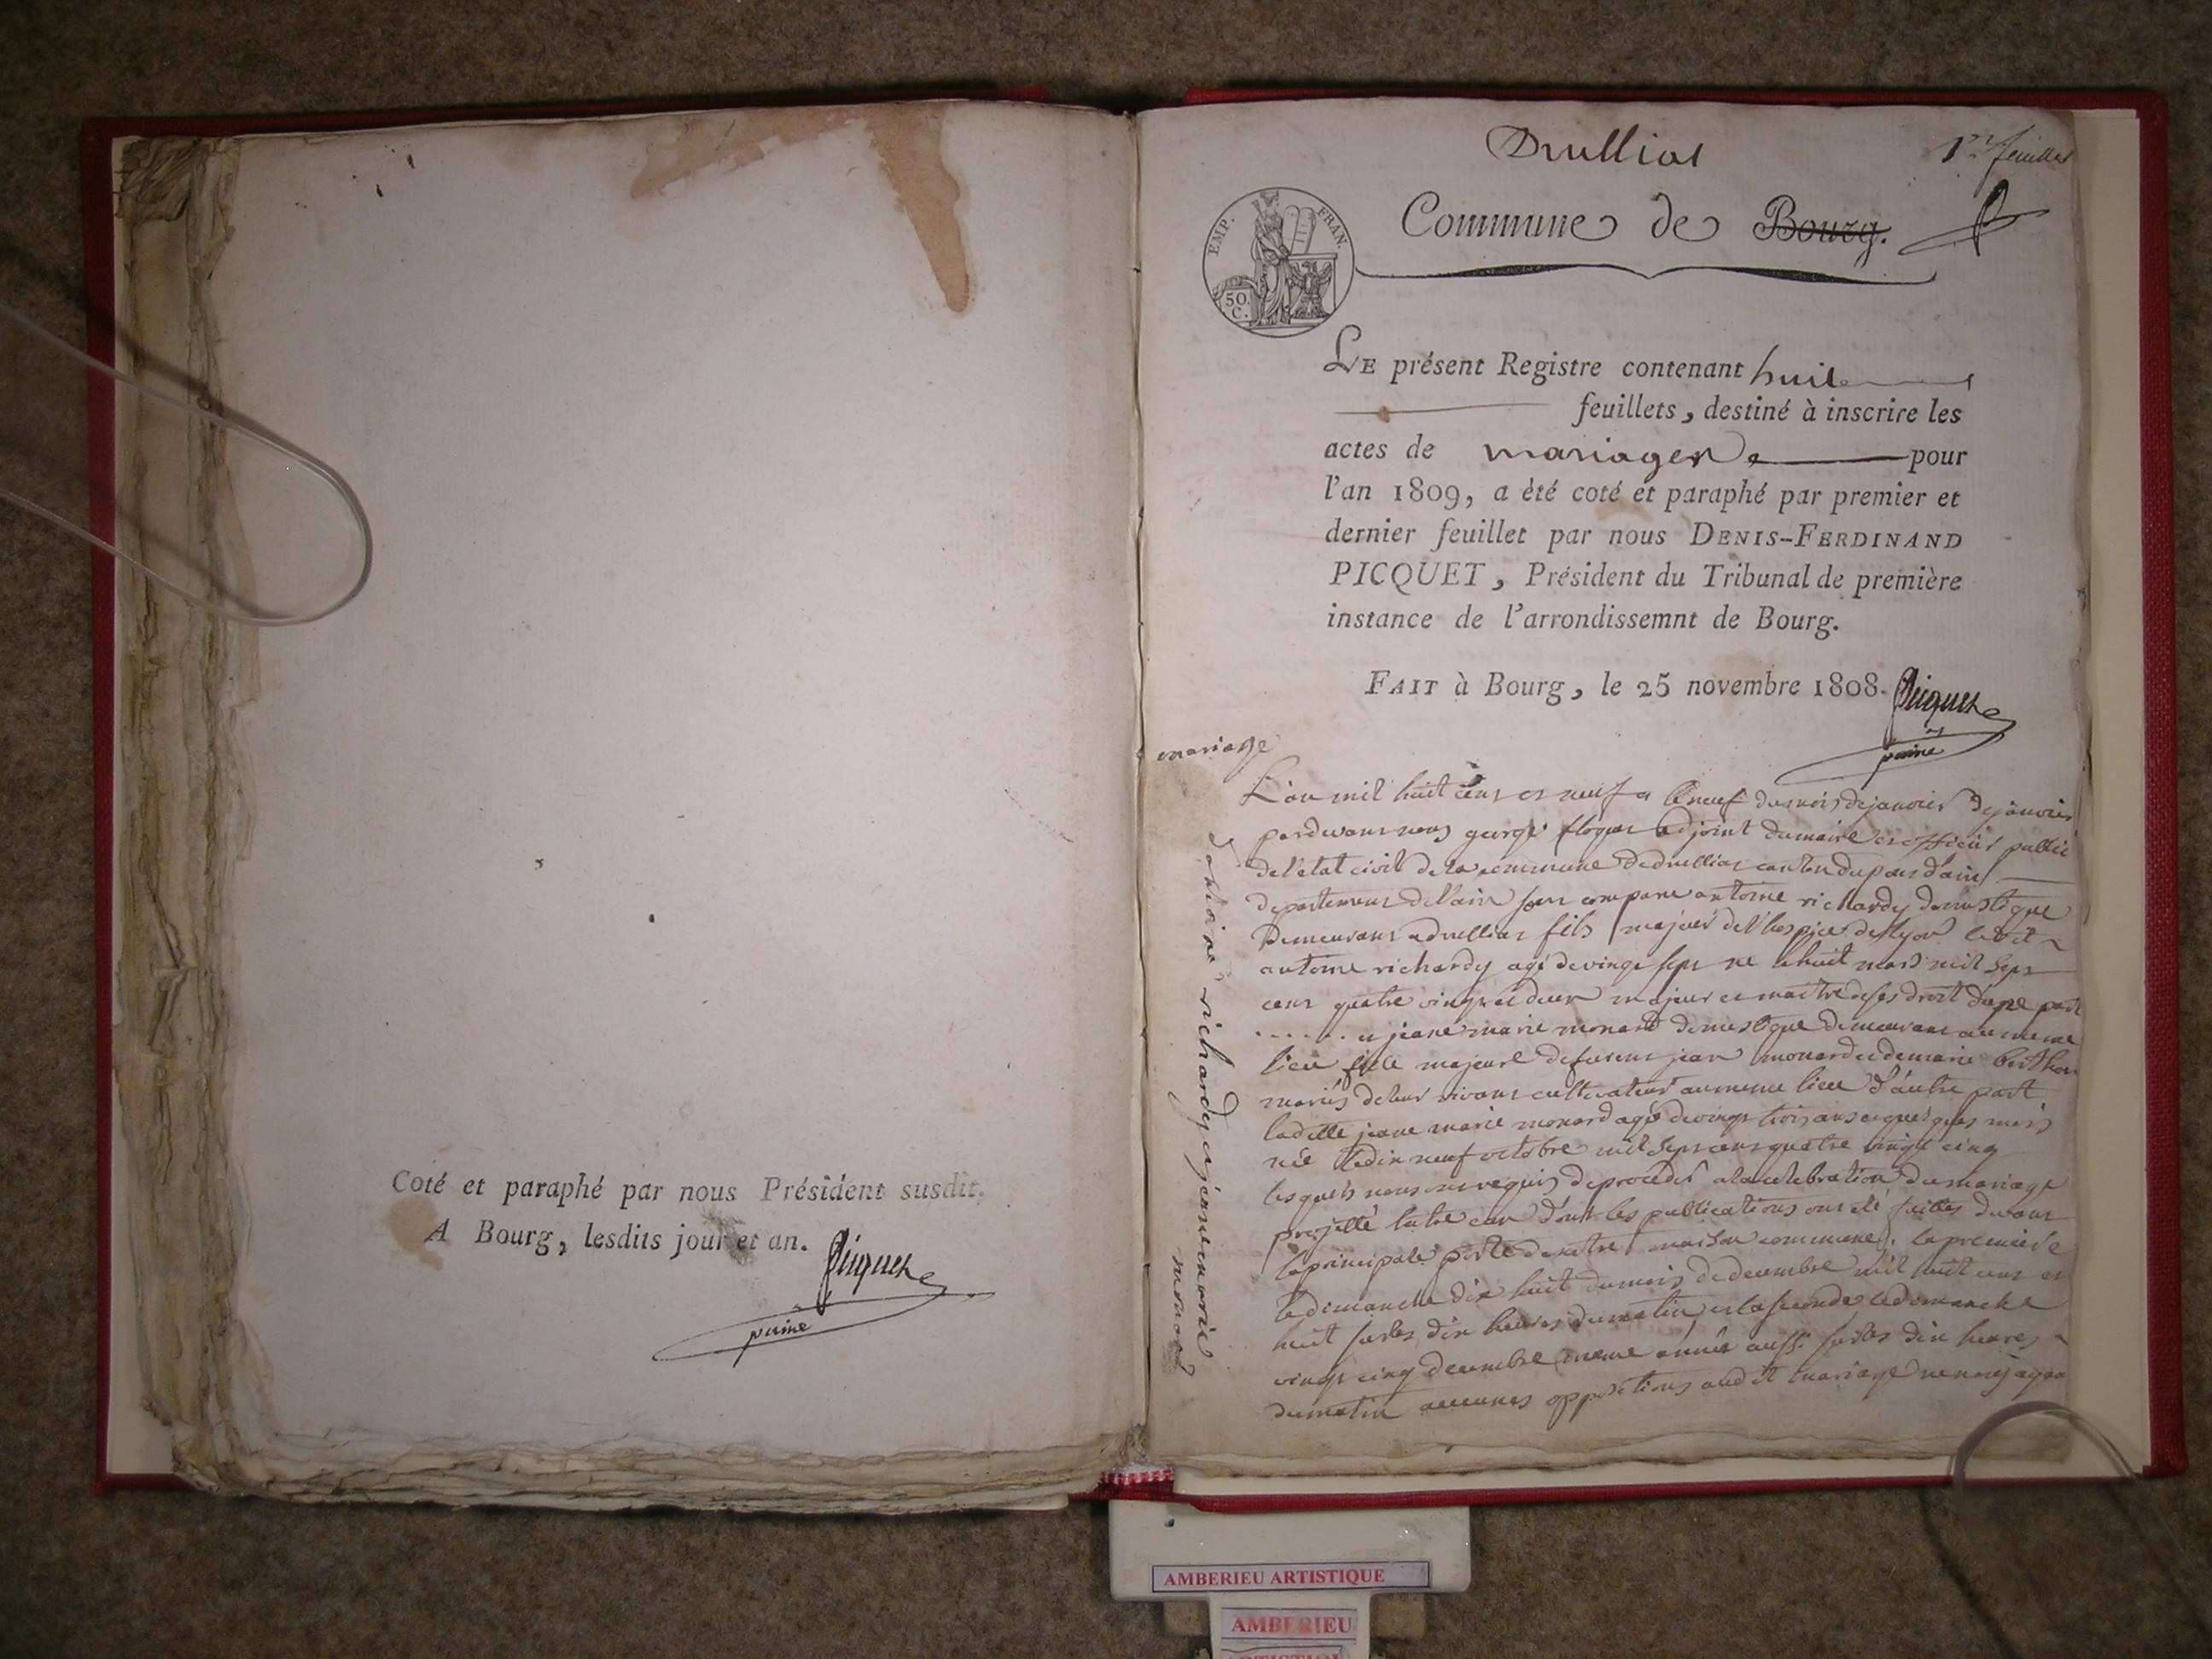 Coté et paraphé par nous Président susdit.
A Bourg, lesdits jour et an.
Picquet
Druillias
1er feuillet
Commune de Bourg.
EMP. FRAN.
50.
C.
LE présent Registre contenant huit
feuillets, destiné à inscrire les
actes de mariages pour
l'an 1809, a été coté et paraphé par premier et
dernier feuillet par nous DENIS-FERDINAND
PICQUET, Président du Tribunal de première
instance de l'arrondissemnt de Bourg.
FAIT à Bourg, le 25 novembre 1808.
Picquet
mariage
d'antoine richardy et jeanne marie
monard
L'an mil huit cent et neuf et le neuf du mois de janvier de janvier
par devant nous george adjoint du maire et officier public
de l'etat civil de la commune de druillias canton du pont d'ain
departement de l'ain sont comparu antoine richardy domestique
demeurant a druillias fils majeur de l'hospice de lyon ledit
antoine richardy agé de vingt sept né le huit mars mil sept
cent quatre vingt et deux majeur et maitre de ses droit d'une part
et jeane marie monard domestique demeurant au meme
lieu fille majeure de furent jean monard et de marie
mariés de leur vivant cultivateur au meme lieu d'autre part
laditte jeane marie monard agé de vingt trois ans et quelques mois
née le dix neuf octobre mil sept cent quatre vingt cinq
lesquels nous ont requis de proceder a la celebration du mariage
projetté entre eux dont les publications ont été faittes devant
la principale porte de notre maison commune. la premiere
le dimanche dix huit du mois de decembre mil huit cent et
huit sur les dix heures du matin et la seconde le dimanche
vingt cinq decembre meme année aussi sur les dix heures
du matin aucunes oppositions audit mariage
AMBERIEU ARTISTIQUE
AMBERIEU